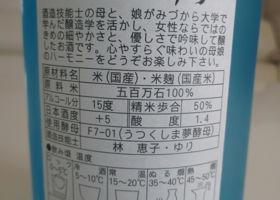 酒造技能士の母と、娘がみづから大学で
学んだ醸造学を活かし、女性ならではの
きめの細やかさと、優しさで吟味して醸
したお酒です。心やすらぐ味わいの母娘
のハーモニーをどうぞお楽しみ下さい。
原材料名 米(国産)・米麹(国産米)
原料米 五百万石100%
アルコール分 15度 精米歩合 50%
日本酒度 +5 酸度 1.4
使用酵母 F7-01(うつくしま夢酵母)
酒造技能士 林 恵子・ゆり
●飲み頃 温度
冷酒 常温 ぬる燗 熱燗
5~10℃ 15~20℃ 35~40℃ 45~50℃